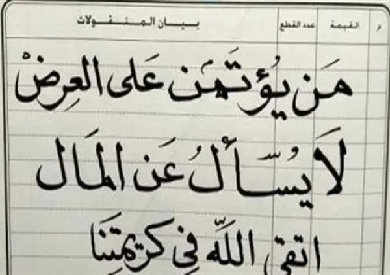 م القيمة عدد القطع بيان المنقولات
مَن يُؤتَمَن عَلى العِرضْ
لَا يُسَّألُ عَن المَال
اتقِ اللَّه فِي كَرِيمَتِنَا